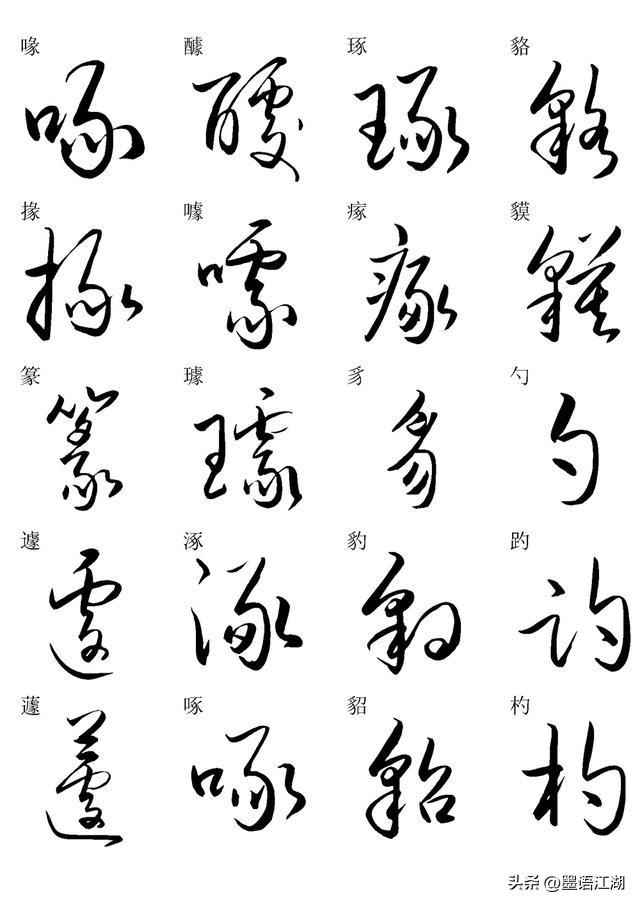 喙 醵 琢 貉
掾 噱 瘃 貘
篆 璩 豸 勺
遽 涿 豹 趵
蘧 啄 貂 杓
头条 @墨语江湖